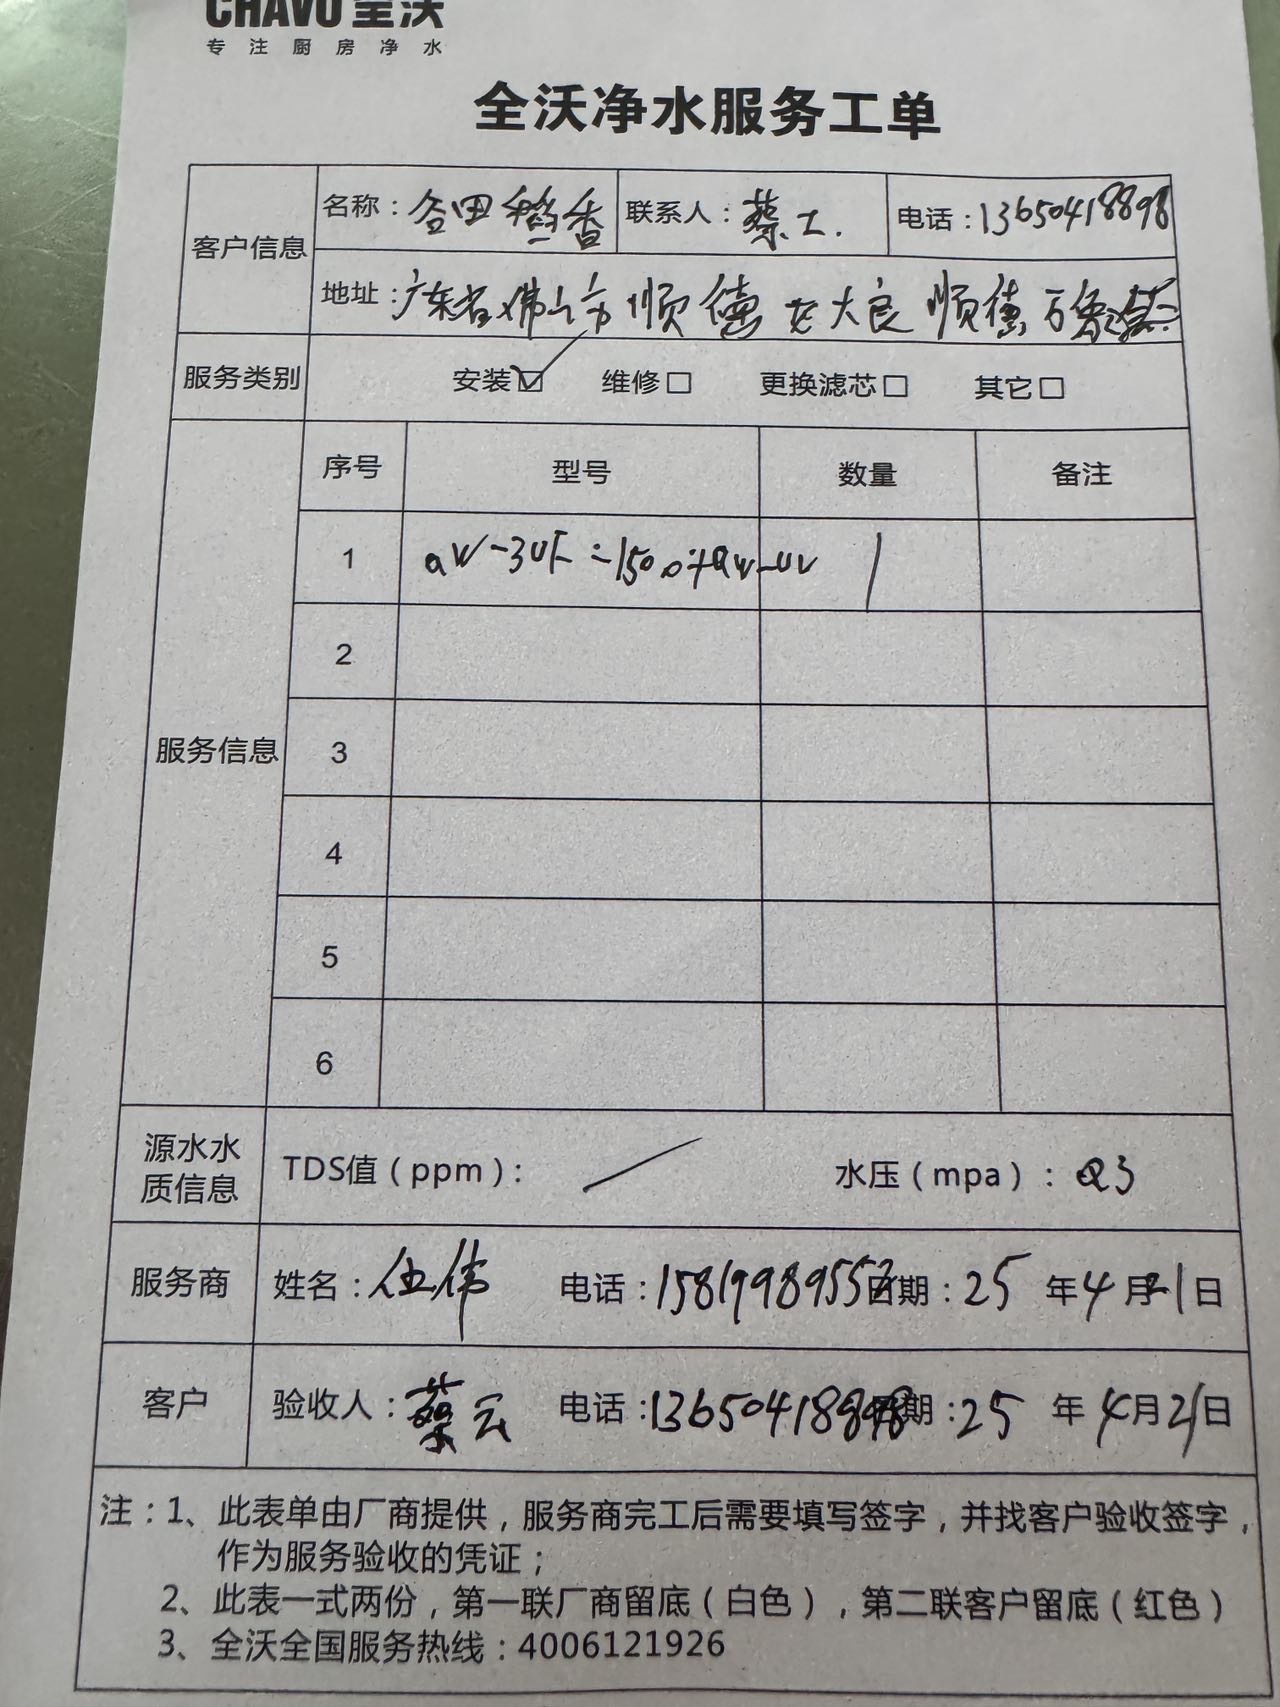 CHAVO 全沃
专注厨房净水
全沃净水服务工单
客户信息 名称：谷田稻香 联系人：蔡工. 电话：13650418898
地址：广东省佛山市顺德区大良顺德万象汇
服务类别 安装☑ 维修□ 更换滤芯□ 其它□
服务信息 序号 型号 数量 备注
1 QW-3UF-1500+QW-UV 1
2
3
4
5
6
源水水质信息 TDS值（ppm）：/ 水压（mpa）：0.3
服务商 姓名：伍伟 电话：15819989552 日期：25年4月21日
客户 验收人：蔡云 电话：13650418898 日期：25年4月21日
注：1、此表单由厂商提供，服务商完工后需要填写签字，并找客户验收签字，
作为服务验收的凭证；
2、此表一式两份，第一联厂商留底（白色），第二联客户留底（红色）
3、全沃全国服务热线：4006121926